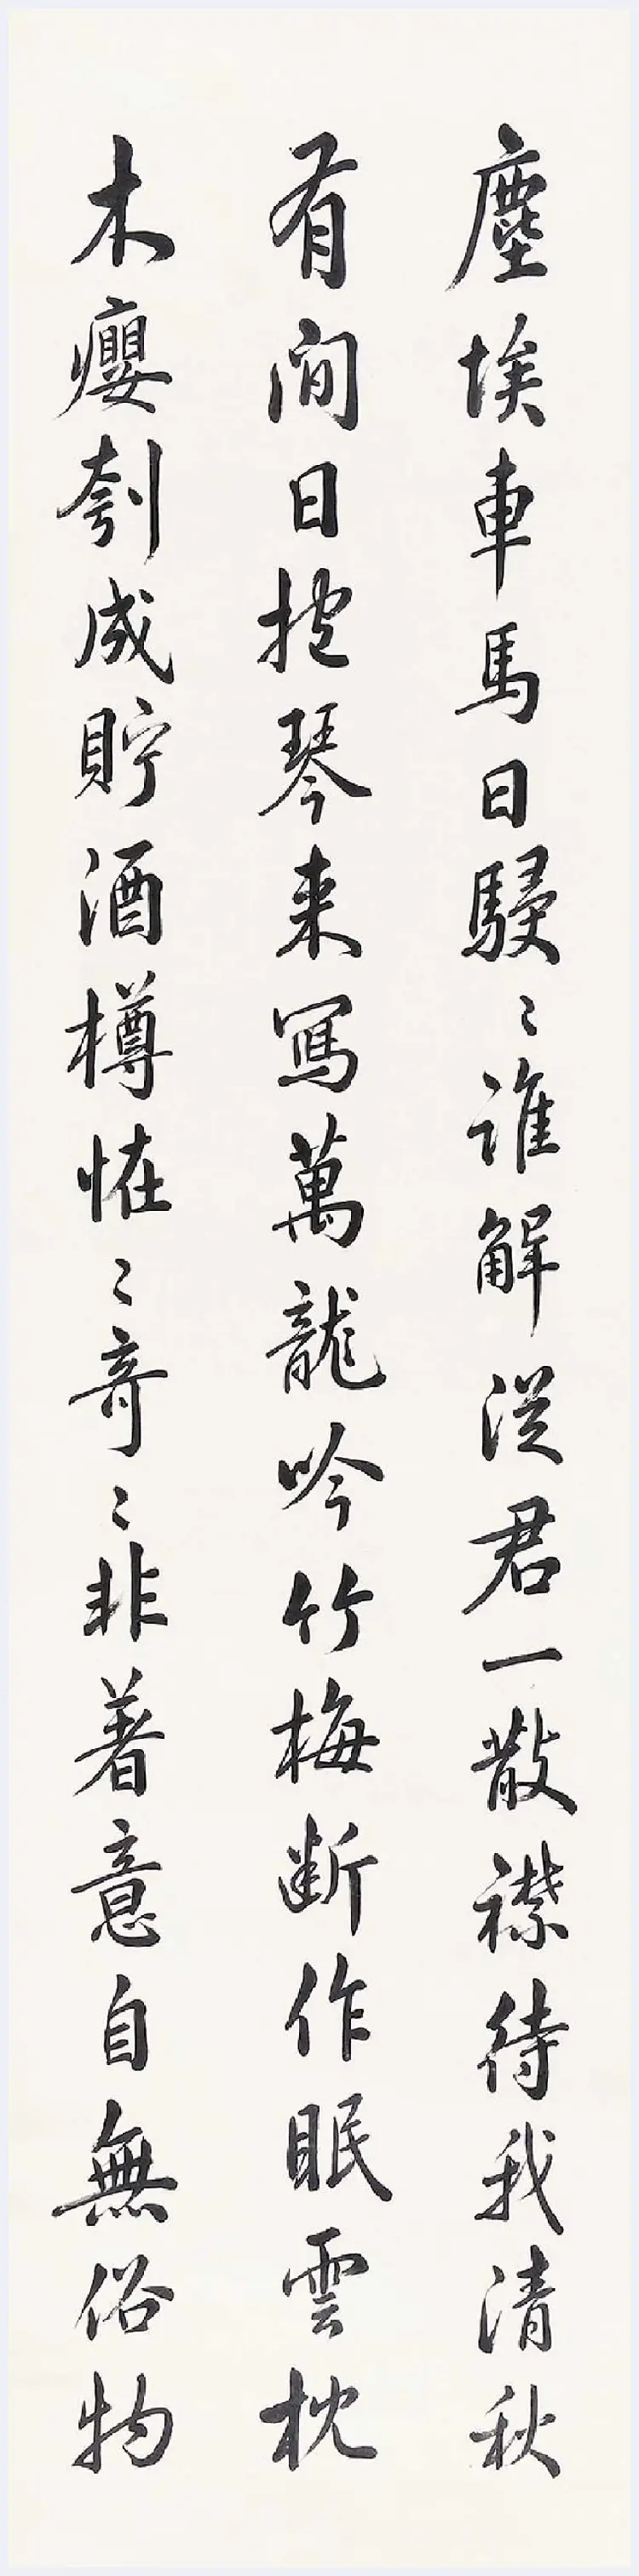 塵埃車馬日駸〻誰解從君一散襟待我清秋
有閒日抱琴来寫萬龍吟竹梅断作眠雲枕
木癭刳成貯酒樽恠〻奇〻非著意自無俗物